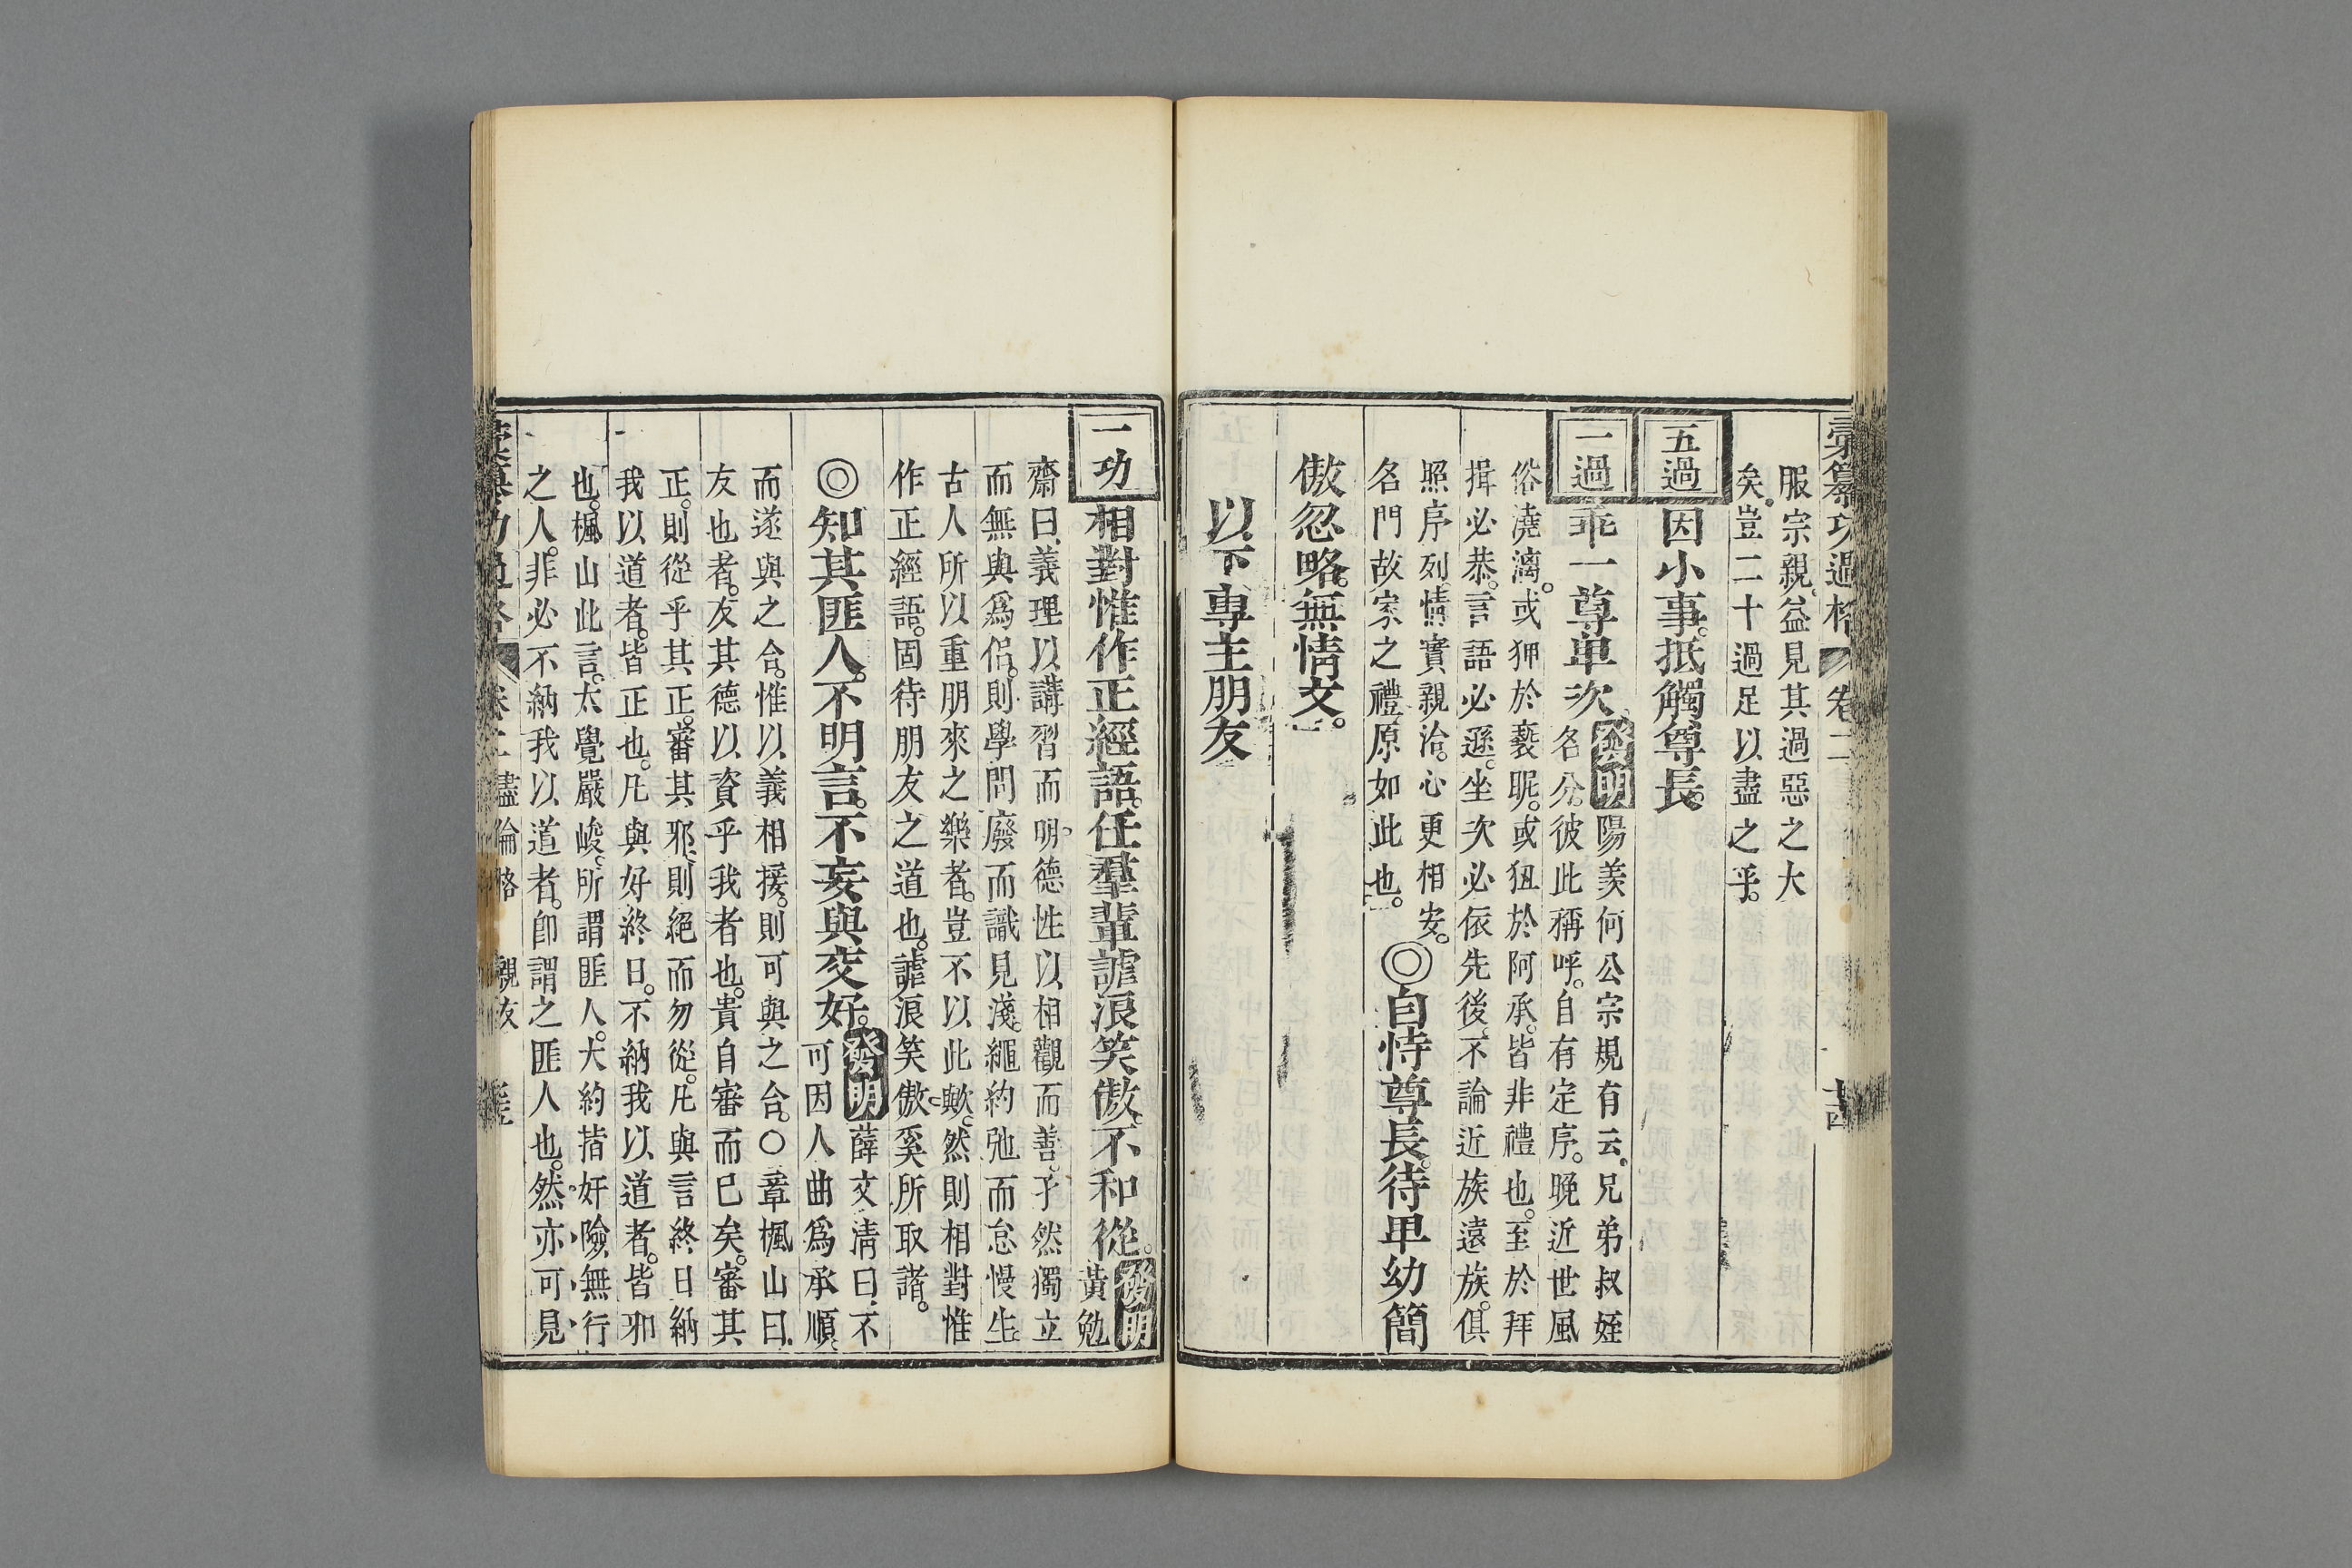 彙纂功過格 卷二 十四
服宗親。益見其過惡之大
矣。豈二十過足以盡之乎。
五過 因小事。抵觸尊長。
一過 乖一尊卑次。發明 陽羨何公宗規有云。兄弟叔姪
名分。彼此稱呼。自有定序。晚近世風
俗澆漓。或狎於褻昵。或狃於阿承。皆非禮也。至於拜
揖必恭。言語必遜。坐次必依先後。不論近族遠族。俱
照序列。情實親洽。心更相安。
名門故家之禮。原如此也。
◎自恃尊長。待卑幼簡
傲忽略。無情文。
以下專主朋友
一功 相對惟作正經語。任羣輩謔浪笑傲。不和從。發明
黃勉
齋曰、義理以講習而明。德性以相觀而善。孑然獨立
而無與爲侶。則學問廢而識見淺。繩約弛而怠慢生
古人所以重朋來之樂者。豈不以此歟。然則相對惟
作正經語。固待朋友之道也。謔浪笑傲。奚所取諸。
◎知其匪人。不明言。不妄與交好。發明 薛文淸曰、不
可因人曲爲承順。
而遂與之合。惟以義相援。則可與之合。〇章楓山曰、
友也者。友其德以資乎我者也。貴自審而已矣。審其
正。則從乎其正。審其邪。則絕而勿從。凡與言終日納
我以道者。皆正也。凡與好終日。不納我以道者。皆邪
也。楓山此言。太覺嚴峻。所謂匪人。大約指奸險無行
之人。非必不納我以道者。卽謂之匪人也。然亦可見
功過格 卷二 盡倫格 親友